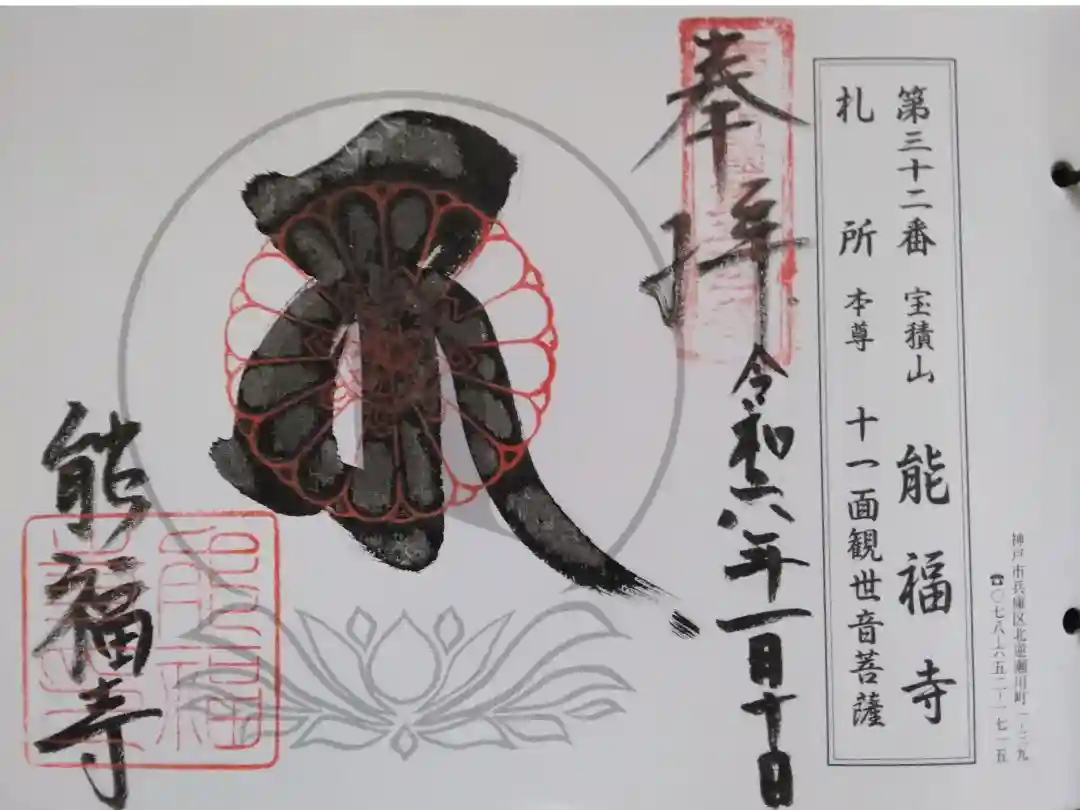 第三十二番 宝積山 能福寺
札所 本尊 十一面観世音菩薩
神戸市兵庫区北逆瀬川町一ー三九
☎〇七八ー六五二ー一七一五
奉拝
令和六年一月十日
能福寺